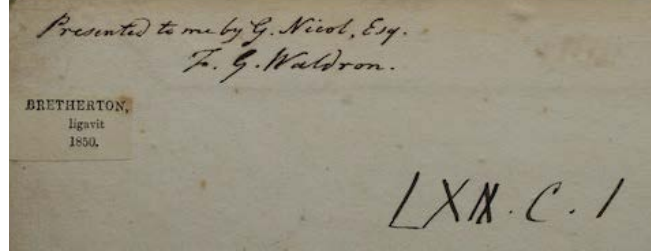 Presented to me by G. Nicol, Esq.
F. G. Waldron.
BRETHERTON,
ligavit
1850.
LXII. C. 1